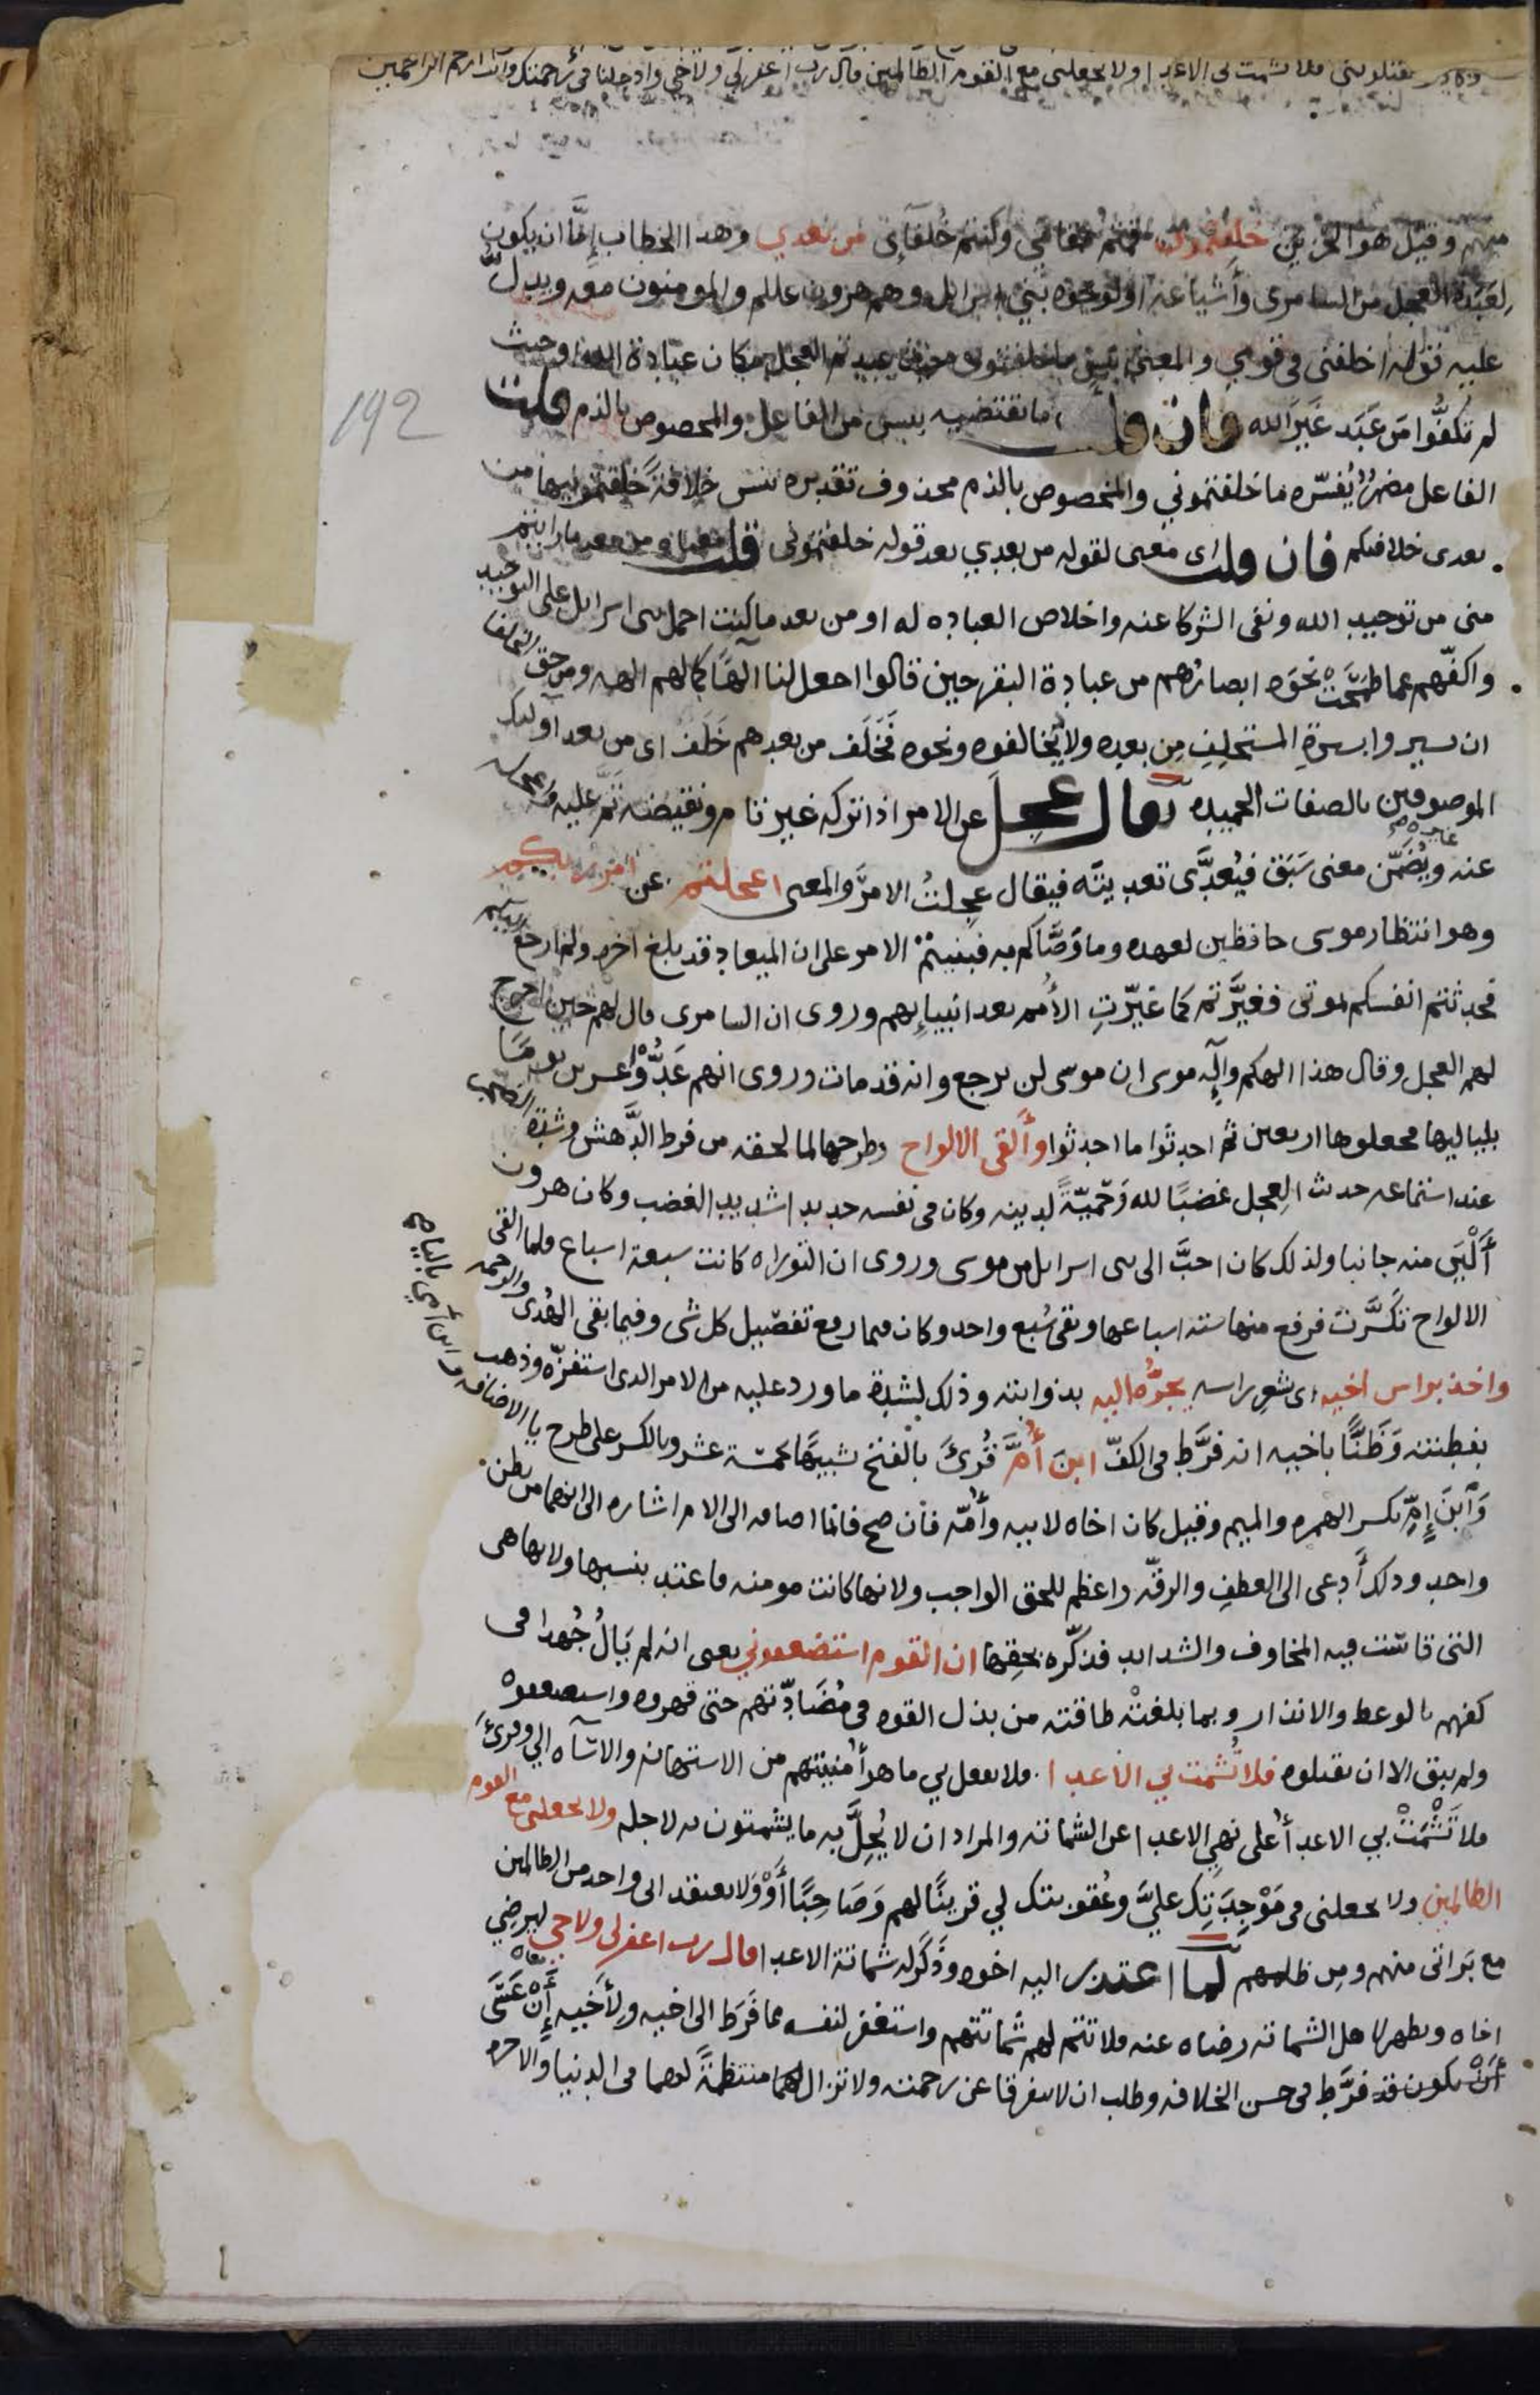 يقتلوننى فلا تشمت بى الاعدا ولا تجعلنى مع القوم الظالمين قال رب اغفر لى ولاخى وادخلنا فى رحمتك وانت ارحم الراحمين
منهم وقيل هو الحزين خلفتمونى قمتم مقامى وكنتم خُلفآئى من بعدي وهذا الخطاب إِمَّا ان يكون
لِعَبَدة العجل من السامرى وأشياعه او لوجوه بني اسرايل وهم هرون عللم والمومنون معه ويدلُّ
عليه قوله اخلفنى فى قومي والمعنى بئس ما خلفتمونى حيث عبدتم العجل مكان عبادة الله او حيث
لم تكفُّوا من عَبَد غَيرَ الله فان قلت ما تقتضيه بيس من الفاعل والمخصوص بالذم قلت
192
الفاعل مضمرٌ يُفسّره ما خلفتموني والمخصوص بالذم محذوف تقديره بئس خلافةً خلفتمونيها من
بعدى خلافتكم فان قلت اى معنى لقوله من بعدي بعد قوله خلفتمونى قلت معناه من بعد ما رايتم
منى من توحيد الله ونفى الشركا عنه واخلاص العباده له او من بعد ما كنت احمل بنى اسرايل على التوحيد
واكفّهم عما طمَحَتْ نحوَه ابصارُهم من عبادة البقر حين قالوا اجعل لنا الهًا كما لهم الهه ومن حق الخلفا
ان يسيروا بسيرةِ المستخلِفِ مِن بعدِه ولا يُخالفوه ونحوه فَخَلَف من بعدهم خَلَف اى من بعد اوليك
الموصوفين بالصفات الحميده يقال عجِل عن الامر اذا تركه غير تام ونقيضه تمَّ عليه واعجله
عنه غيره ويُضَمَّن معنى سَبَق فيُعدَّى تعديتَه فيقال عجِلتُ الامرَ والمعنى اعجلتم عن امر ربكم
وهو انتظار موسى حافظين لعهده وما وَصَّاكم به فبنيتمْ الامر على ان الميعاد قد بلغ اخره ولم ارجع اليكم
فحدثتم انفسكم بموتى فغيَّرتم كما غيّرتِ الأُمم بعد انبيايهم وروى ان السامرى قال لهم حين اخرج
لهم العجل وقال هذا الهكم وآله موسى ان موسى لن يرجع وانه قد مات وروى انهم عَدُّوا عشرين يومًا
بلياليها فجعلوها اربعين ثم احدثوا ما احدثوا وأَلقى الالواح وطرحها لما لحقه من فرط الدَّهش وشدة الضجر
عند استماعه حديث العِجل غضبًا لله وَحَميّةً لدينه وكان فى نفسه حديدا شديد الغضب وكان هرون
أَلْيَن منه جانبا ولذلك كان احبَّ الى بنى اسرايل من موسى وروى ان التوراه كانت سبعة اسباع فلما القى
الالواح تكسَّرت فرفع منها ستة اسباعها وبقى سُبع واحد وكان فيما رفع تفصيل كل شى وفيما بقى الهُدى والرحمة
واخذ براس اخيه اى بشعرِ راسه يجرُّه اليه بذوابته وذلك لشدة ما ورد عليه من الامر الذى استفزّه وذهب
بفطنته وَظَنًّا باخيه انه فرَّط فى الكفّ ابنَ أُمَّ قُرئ بالفتح تشبيهًا بخمسة عشر وبالكسر على طرح يا الاضافه وابن أمي بالياء
وَآبنَ إِمِّ بكسر الهمزه والميم وقيل كان اخاه لابيه وأُمّه فان صح فانما اضافه الى الام اشاره الى انهما من بطن
واحد وذلك أدعى الى العطفِ والرقّه واعظم للحق الواجب ولانها كانت مومنه فاعتد بنسبها ولانها هى
التى قاستْ فيه المخاوف والشدايد فذكّره بحقِها ان القوم استضعفوني يعنى انه لم يَالُ جُهدا فى
كفهم بالوعظ والانذار وبما بلغتْه طاقته من بذل القوه فى مُضَادّتهم حتى قهروه واستضعفوه
ولم يبق الا ان يقتلوه فلا تُشمت بي الاعدا فلا تفعل بي ما هو أُمنيتهم من الاستهانه والاساه الي وقرئ
فلا تَشْمَتْ بي الاعدأُ على نهي الاعدا عن الشماته والمراد ان لا يُحِلَّ به ما يشمتون به لاجله ولا تجعلنى مع القوم
الظالمين ولا تجعلنى فى مَوْجِدَتِك عليَّ وعُقوبتك لي قرينًا لهم وَصَاحِبًا أَوْ ولا تعتقد انى واحد من الظالمين
مع بَراتى منهم ومِن ظلمهم لما اعتذر اليه اخوه وَذَكَر له شماتة الاعدا قال رب اغفر لى ولاخى ليرضِي
اخاه ويظهر لاهل الشماته رضاه عنه فلا تتم لهم شماتتهم واستغفر لنفسه مما فَرَط الى اخيه ولأَخيه أَنْ عَسَى
أَنْ يكون قد فرَّط فى حسن الخلافه وطلب ان لا يتفرقا عن رحمته ولا تزال لهما منتظمةً لهما فى الدنيا والاخره